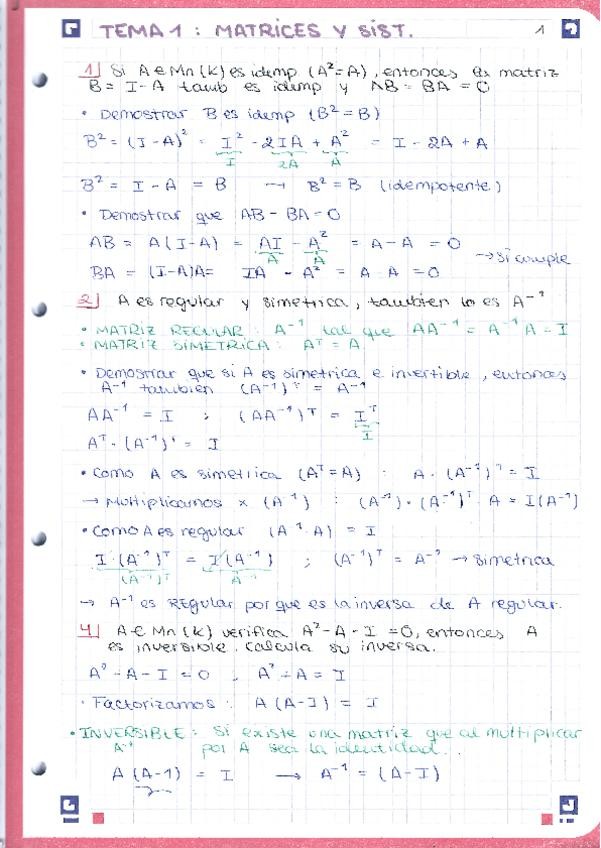 TEMA 1 : MATRICES Y SIST. 1
1) Si A ∈ Mn (K) es idemp (A² = A), entonces la matriz
B = I - A tamb es idemp y AB = BA = 0
• Demostrar B es idemp (B² = B)
B² = (I - A)² = I² - 2IA + A² = I - 2A + A
I 2A A
B² = I - A = B → B² = B (idempotente)
• Demostrar que AB - BA = 0
AB = A(I - A) = AI - A² = A - A = 0
A A → Si cumple
BA = (I - A)A = IA - A² = A - A = 0
2) A es regular y simetrica, tambien lo es A⁻¹
• MATRIZ REGULAR : A⁻¹ tal que AA⁻¹ = A⁻¹A = I
• MATRIZ SIMETRICA : Aᵀ = A
• Demostrar que si A es simetrica e invertible, entonces
A⁻¹ tambien (A⁻¹)ᵀ = A⁻¹
AA⁻¹ = I ; (AA⁻¹)ᵀ = Iᵀ
I
Aᵀ · (A⁻¹)ᵀ = I
• Como A es simetrica (Aᵀ = A) : A · (A⁻¹)ᵀ = I
→ Multiplicamos x (A⁻¹) : (A⁻¹) · (A⁻¹)ᵀ · A = I(A⁻¹)
• Como A es regular (A⁻¹ A) = I
I · (A⁻¹)ᵀ = I(A⁻¹) ; (A⁻¹)ᵀ = A⁻¹ → Simetrica
(A⁻¹)ᵀ A⁻¹
→ A⁻¹ es REGULAR por que es la inversa de A regular.
4) A ∈ Mn (K) verifica A² - A - I = 0, entonces A
es inversible. Calcula su inversa.
A² - A - I = 0 , A² - A = I
• Factorizamos : A (A - I) = I
• INVERSIBLE : Si existe una matriz que al multiplicar
A⁻¹ por A sea la identidad.
A (A - 1) = I → A⁻¹ = (A - I)